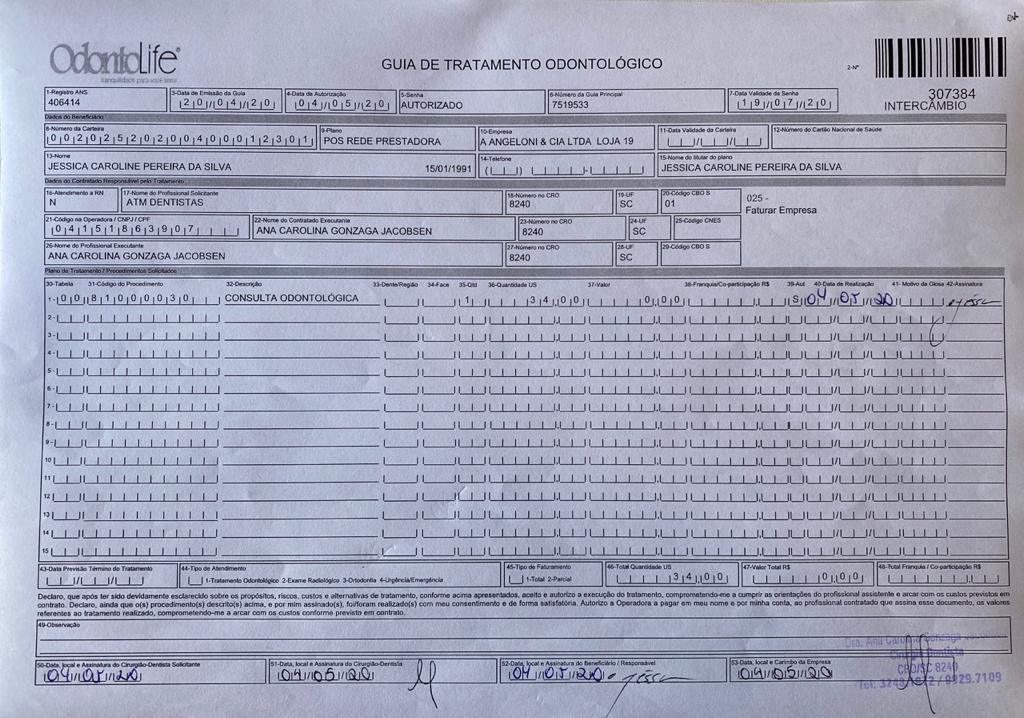 OdontoLife
tranquilidade para você sorrir
GUIA DE TRATAMENTO ODONTOLÓGICO
2-Nº
307384
INTERCÂMBIO
1-Registro ANS 3-Data de Emissão da Guia 4-Data de Autorização 5-Senha 6-Número da Guia Principal 7-Data Validade da Senha
406414 20/04/20 04/05/20 AUTORIZADO 7519533 19/07/20
Dados do Beneficiário
8-Número da Carteira 9-Plano 10-Empresa 11-Data Validade da Carteira 12-Número do Cartão Nacional de Saúde
00202520200400012301 POS REDE PRESTADORA A ANGELONI & CIA LTDA LOJA 19
13-Nome 14-Telefone 15-Nome do titular do plano
JESSICA CAROLINE PEREIRA DA SILVA 15/01/1991 JESSICA CAROLINE PEREIRA DA SILVA
Dados do Contratado Responsável pelo Tratamento
16-Atendimento a RN 17-Nome do Profissional Solicitante 18-Número no CRO 19-UF 20-Código CBO S
N ATM DENTISTAS 8240 SC 01
025 -
Faturar Empresa
21-Código na Operadora / CNPJ / CPF 22-Nome do Contratado Executante 23-Número no CRO 24-UF 25-Código CNES
04151863907 ANA CAROLINA GONZAGA JACOBSEN 8240 SC
26-Nome do Profissional Executante 27-Número no CRO 28-UF 29-Código CBO S
ANA CAROLINA GONZAGA JACOBSEN 8240 SC
Plano de Tratamento / Procedimentos Solicitados
30-Tabela 31-Código do Procedimento 32-Descrição 33-Dente/Região 34-Face 35-Qtd 36-Quantidade US 37-Valor 38-Franquia/Co-participação R$ 39-Aut 40-Data de Realização 41- Motivo da Glosa 42-Assinatura
1- 00 81000030 CONSULTA ODONTOLÓGICA 1 34,00 0,00 S 04/05/20
2-
3-
4-
5-
6-
7-
8-
9-
10
11
12
13
14
15
43-Data Previsão Término do Tratamento 44-Tipo de Atendimento 45-Tipo de Faturamento 46-Total Quantidade US 47-Valor Total R$ 48-Total Franquia / Co-participação R$
1-Tratamento Odontológico 2-Exame Radiológico 3-Ortodontia 4-Urgência/Emergência 1-Total 2-Parcial 34,00 0,00
Declaro, que após ter sido devidamente esclarecido sobre os propósitos, riscos, custos e alternativas de tratamento, conforme acima apresentados, aceito e autorizo a execução do tratamento, comprometendo-me a cumprir as orientações do profissional assistente e arcar com os custos previstos em
contrato. Declaro, ainda que o(s) procedimento(s) descrito(s) acima, e por mim assinado(s), foi/foram realizado(s) com meu consentimento e de forma satisfatória. Autorizo a Operadora a pagar em meu nome e por minha conta, ao profissional contratado que assina esse documento, os valores
referentes ao tratamento realizado, comprometendo-me a arcar com os custos conforme previsto em contrato.
49-Observação
Dra. Ana Carolina Gonzaga
Cirurgiã Dentista
CRO/SC 8240
50-Data, local e Assinatura do Cirurgião-Dentista Solicitante 51-Data, local e Assinatura do Cirurgião-Dentista 52-Data, local e Assinatura do Beneficiário / Responsável 53-Data, local e Carimbo da Empresa
04/05/20 04/05/20 04/05/20 04/05/20